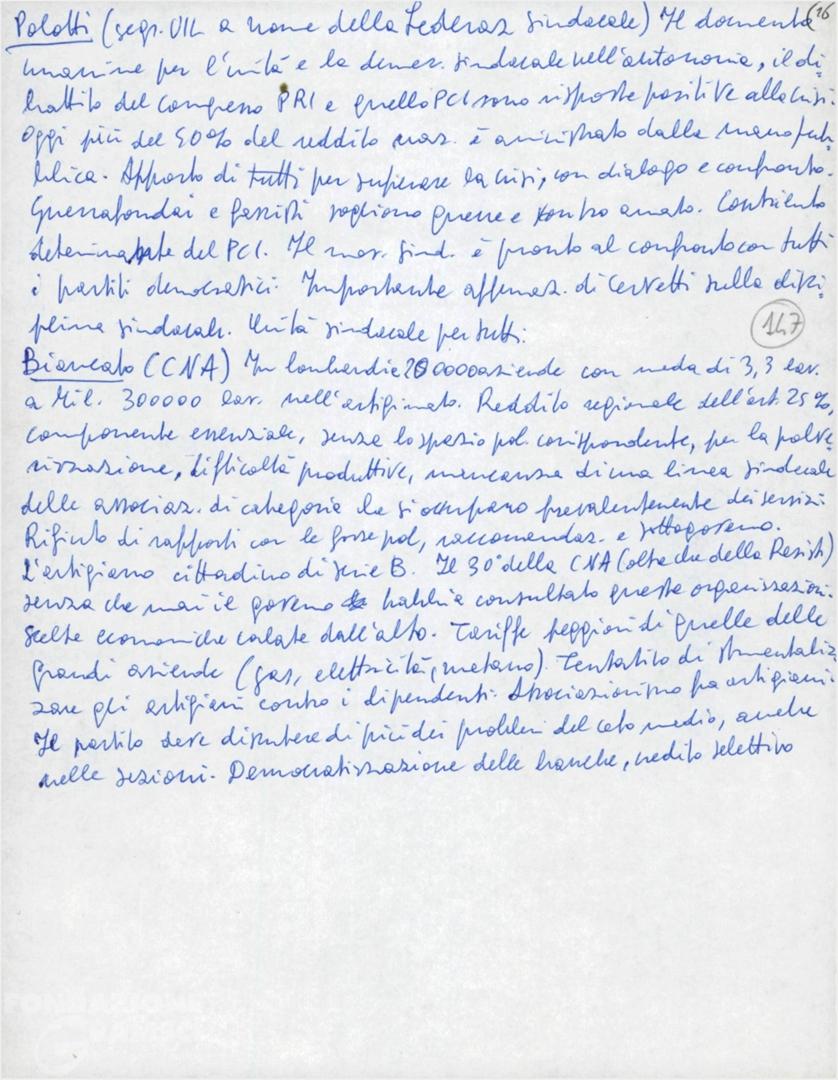 16
Polotti (segr. UIL a nome della Federaz sindacale) Il documento
unanime per l'unità e la democr. sindacale nell'autonomia, il di-
battito del congresso PRI e quello PCI sono risposte positive alla crisi.
Oggi più del 50% del reddito naz. è amministrato dalla mano pub-
blica. Apporto di tutti per superare la crisi, con dialogo e confronto.
Guerrafondai e fascisti vogliono guerre e armato. Contributo
determinante del PCI. Il mov. sind. è pronto al confronto con tutti
i partiti democratici. Importante affermaz. di Cervetti sulla disci-
plina sindacale. Unità sindacale per tutti.
147
Biancato (CNA) In Lombardia 200000 aziende con media di 3,3 lav.
a Mil. 300000 lav. nell'artigianato. Reddito regionale dell'art. 25%,
componente essenziale, senza lo spazio pol. corrispondente, per la polve-
rizzazione, difficoltà produttive, mancanza di una linea sindacale
delle associaz. di categoria che si occupano prevalentemente dei servizi.
Rifiuto di rapporti con le forze pol, raccomandaz. e sottogoverno.
L'artigiano cittadino di serie B. Il 30° della CNA (oltre che della Resist.)
senza che mai il governo habbia consultato queste organizzazioni.
Scelte economiche calate dall'alto. Tariffe peggiori di quelle delle
grandi aziende (gas, elettricità, metano). Tentativo di strumentaliz-
zare gli artigiani contro i dipendenti. Associazionismo fra artigiani.
Il partito deve discutere di più dei problemi del ceto medio, anche
nelle sezioni. Democratizzazione delle banche, credito selettivo